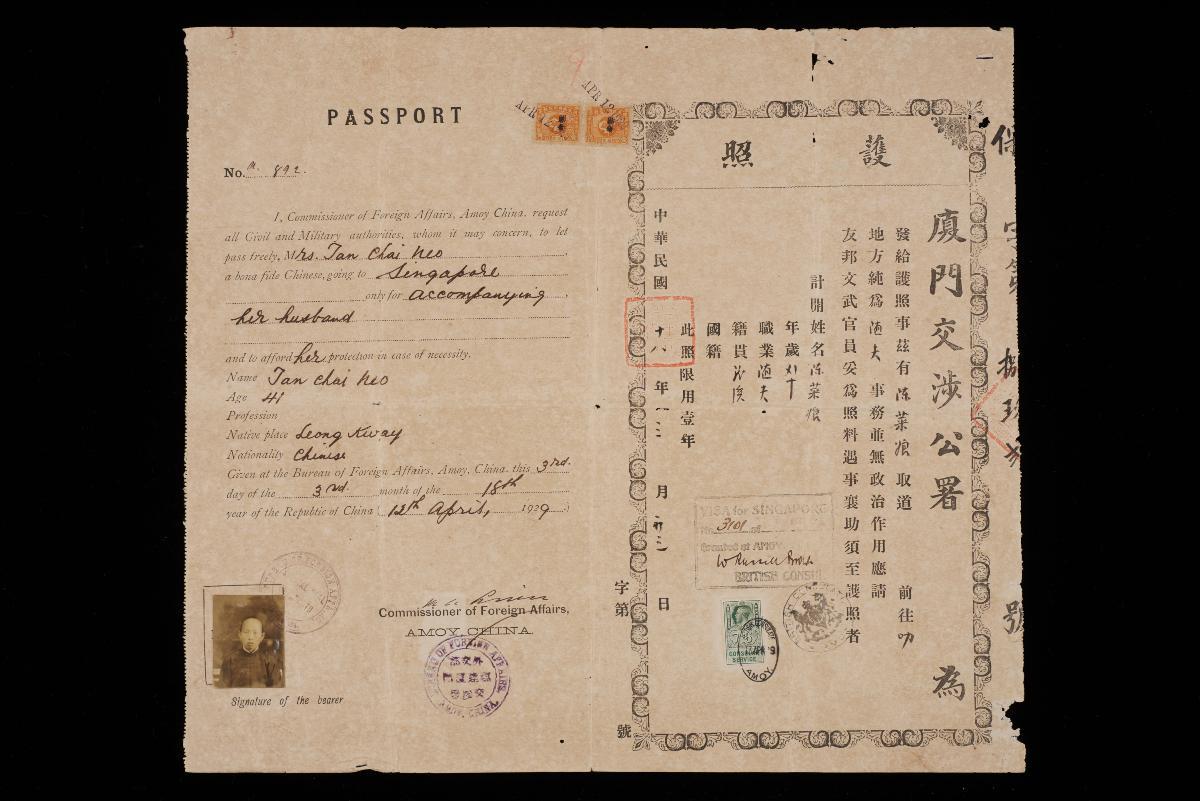 PASSPORT
APR 12
APR 12
No. M. 892.
I, Commissioner of Foreign Affairs, Amoy China. request
all Civil and Military authorities, whom it may concern, to let
pass freely, Mrs. Tan Chai Neo
a bona fide Chinese, going to Singapore
only for accompanying
her husband
and to afford her protection in case of necessity.
Name Tan Chai Neo
Age 41
Profession
Native place Leong Kway
Nationality Chinese
Given at the Bureau of Foreign Affairs, Amoy, China. this 3rd.
day of the 3rd. month of the 18th
year of the Republic of China (12th April, 1929.)
Commissioner of Foreign Affairs,
AMOY, CHINA.
BUREAU OF FOREIGN AFFAIRS,
AMOY, CHINA.
Signature of the bearer
護照
廈門交涉公署 為
發給護照事茲有 陳菜娘 取道 前往叻
地方純為 隨夫 事務並無政治作用應請
友邦文武官員妥為照料遇事襄助須至護照者
計開姓名 陳菜娘
年歲
職業 隨夫
籍貫 龍溪
國籍
此照限用壹年
中華民國 十八 年 月 日
字第 號
號
VISA for SINGAPORE
No. 3101 of
Granted at AMOY
W Russell Brown
BRITISH CONSUL
CONSULAR
SERVICE
AMOY